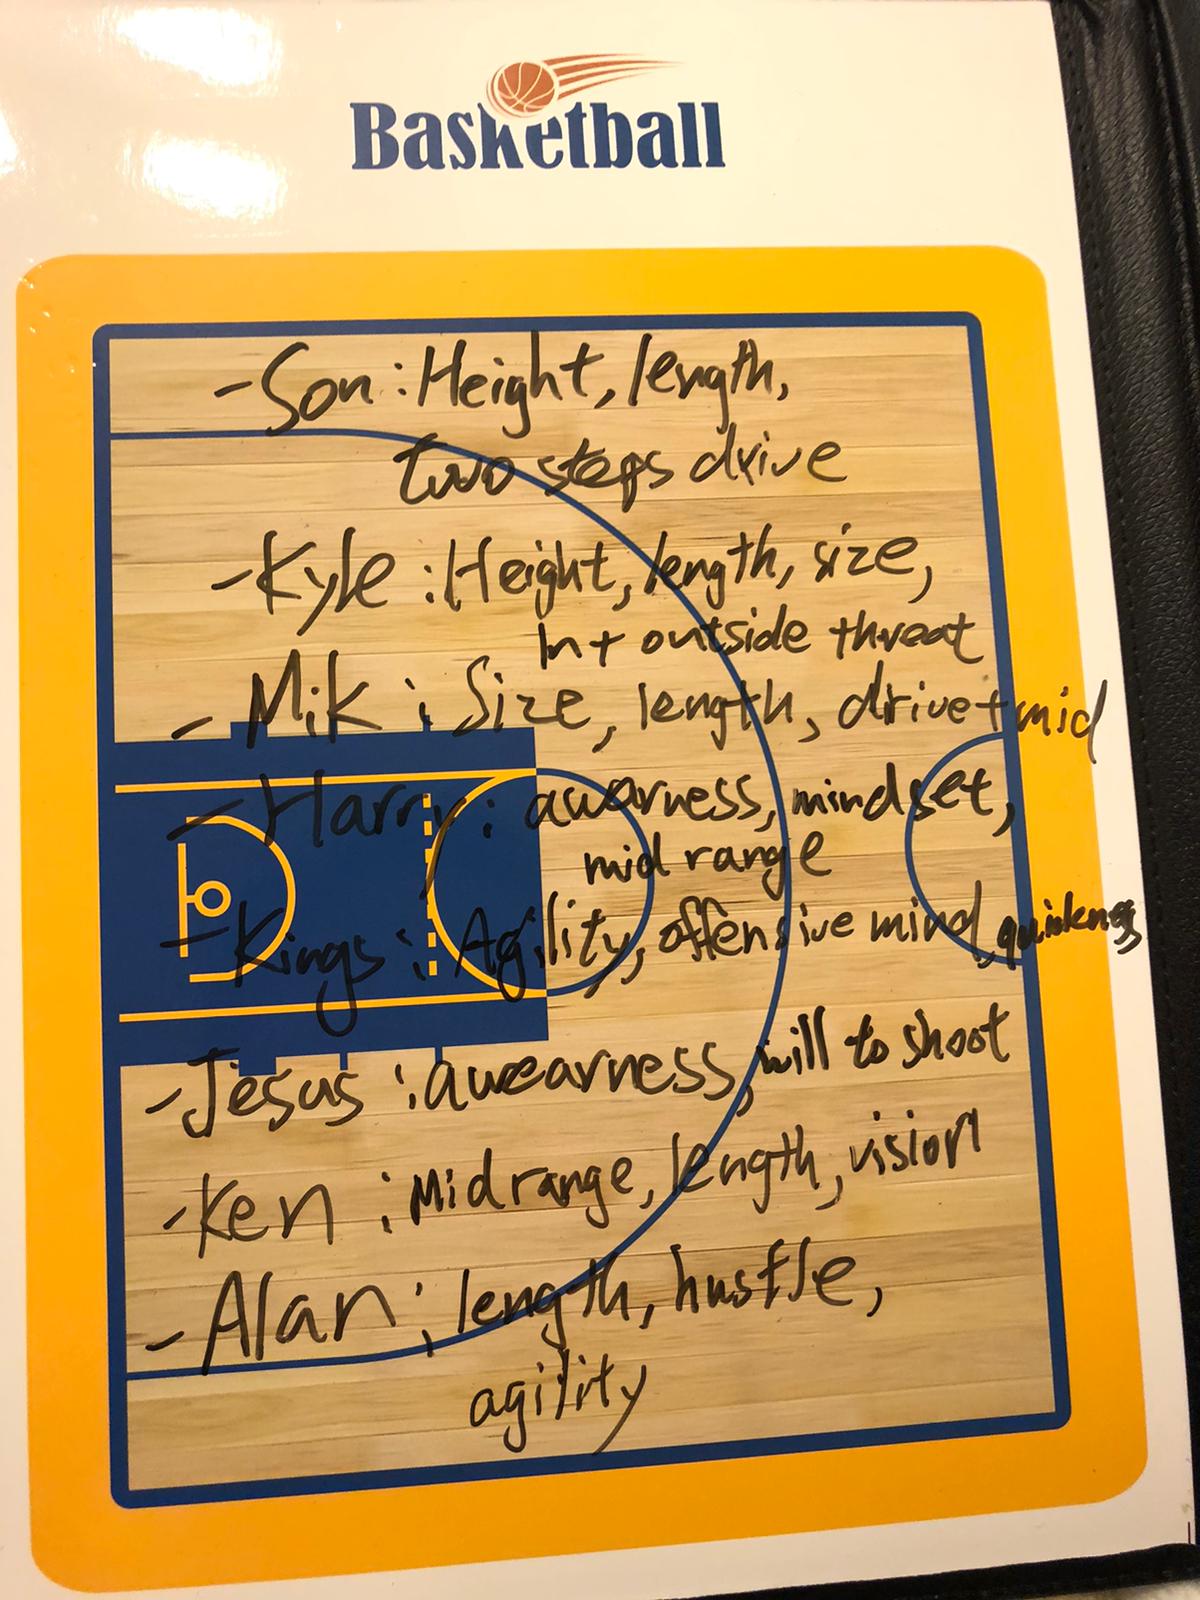 Basketball
- Son : Height, length,
two steps drive
- Kyle : Height, length, size,
In + outside threat
- Mik : Size, length, drive + mid
- Harry : awarness, mindset,
mid range
- Kings : Agility, offensive mind, quickness
- Jesus : awearness, will to shoot
- Ken : Mid range, length, vision
- Alan : length, hustle,
agility